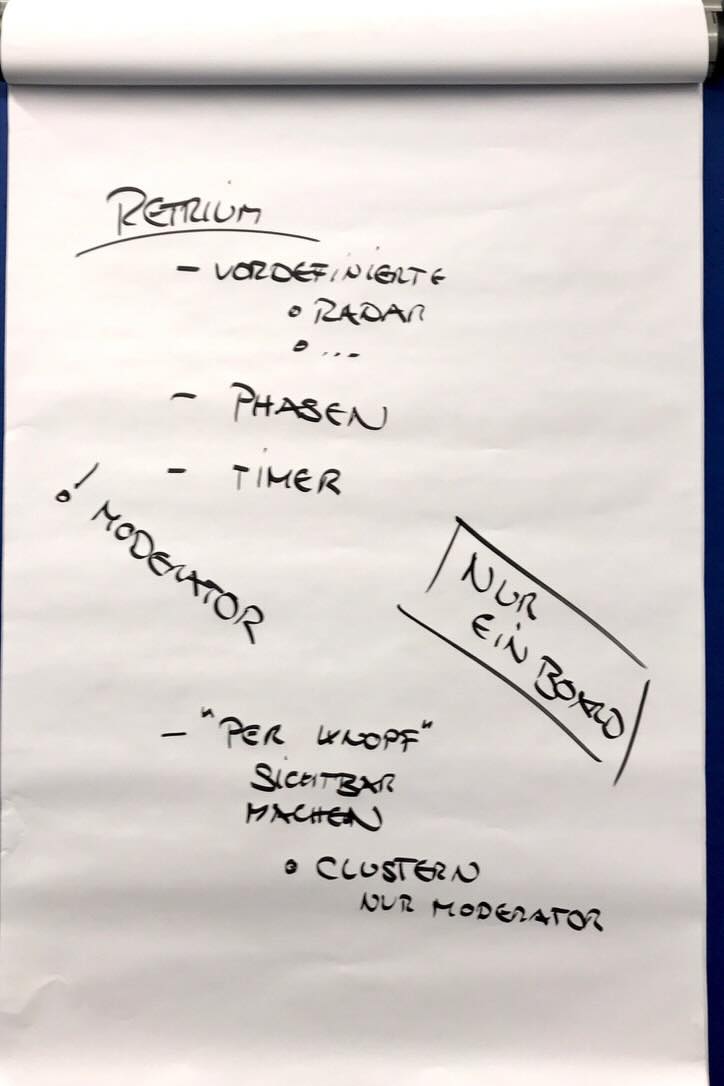 RETRIUM
- VORDEFINIERTE
• RADAR
• ...
- PHASEN
- TIMER
! MODERATOR
NUR
EIN BOARD
- "PER KNOPF"
SICHTBAR
MACHEN
• CLUSTERN
NUR MODERATOR